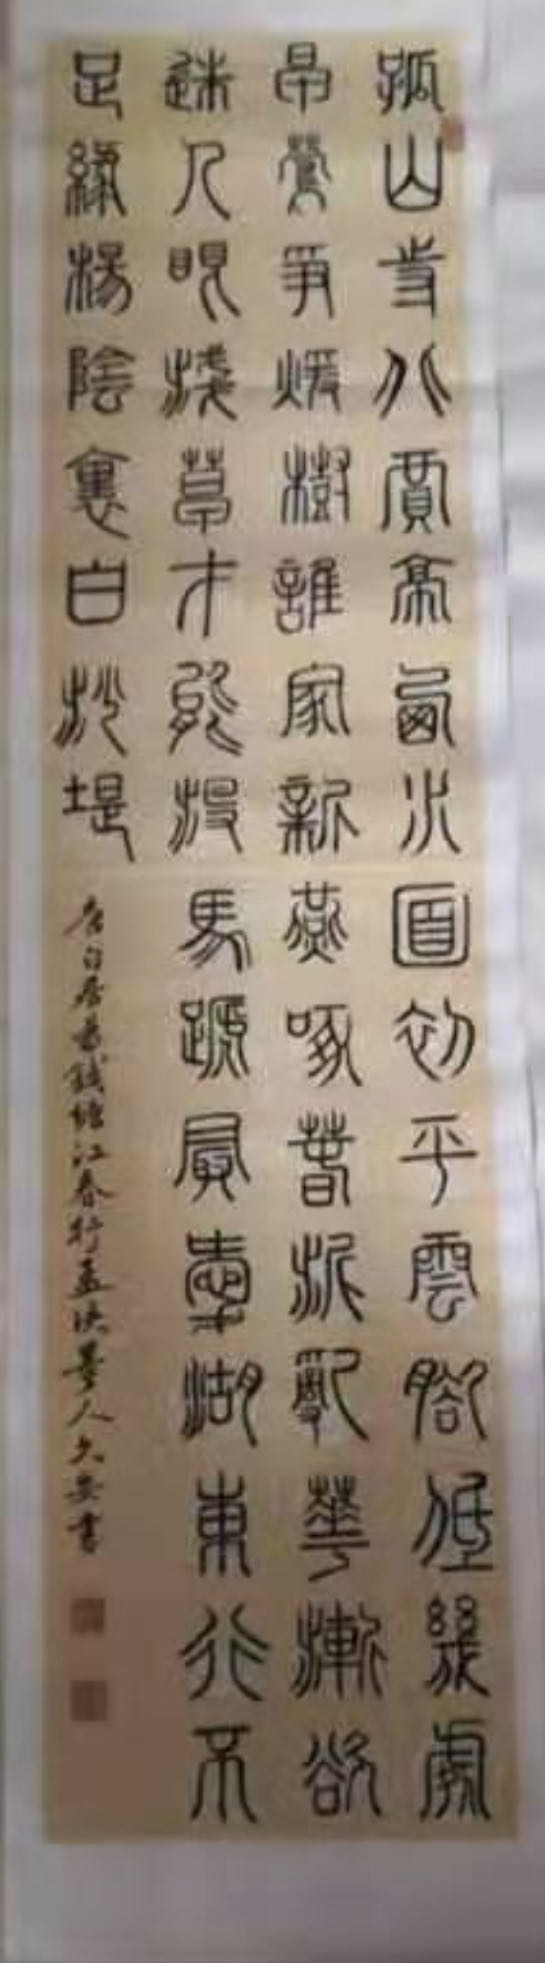 孤山寺北賈亭西水面初平雲腳低幾處
早鶯爭暖樹誰家新燕啄春泥亂花漸欲
迷人眼淺草才能沒馬蹄最愛湖東行不
足綠楊陰裏白沙堤
唐白居易錢塘江春行孟人書